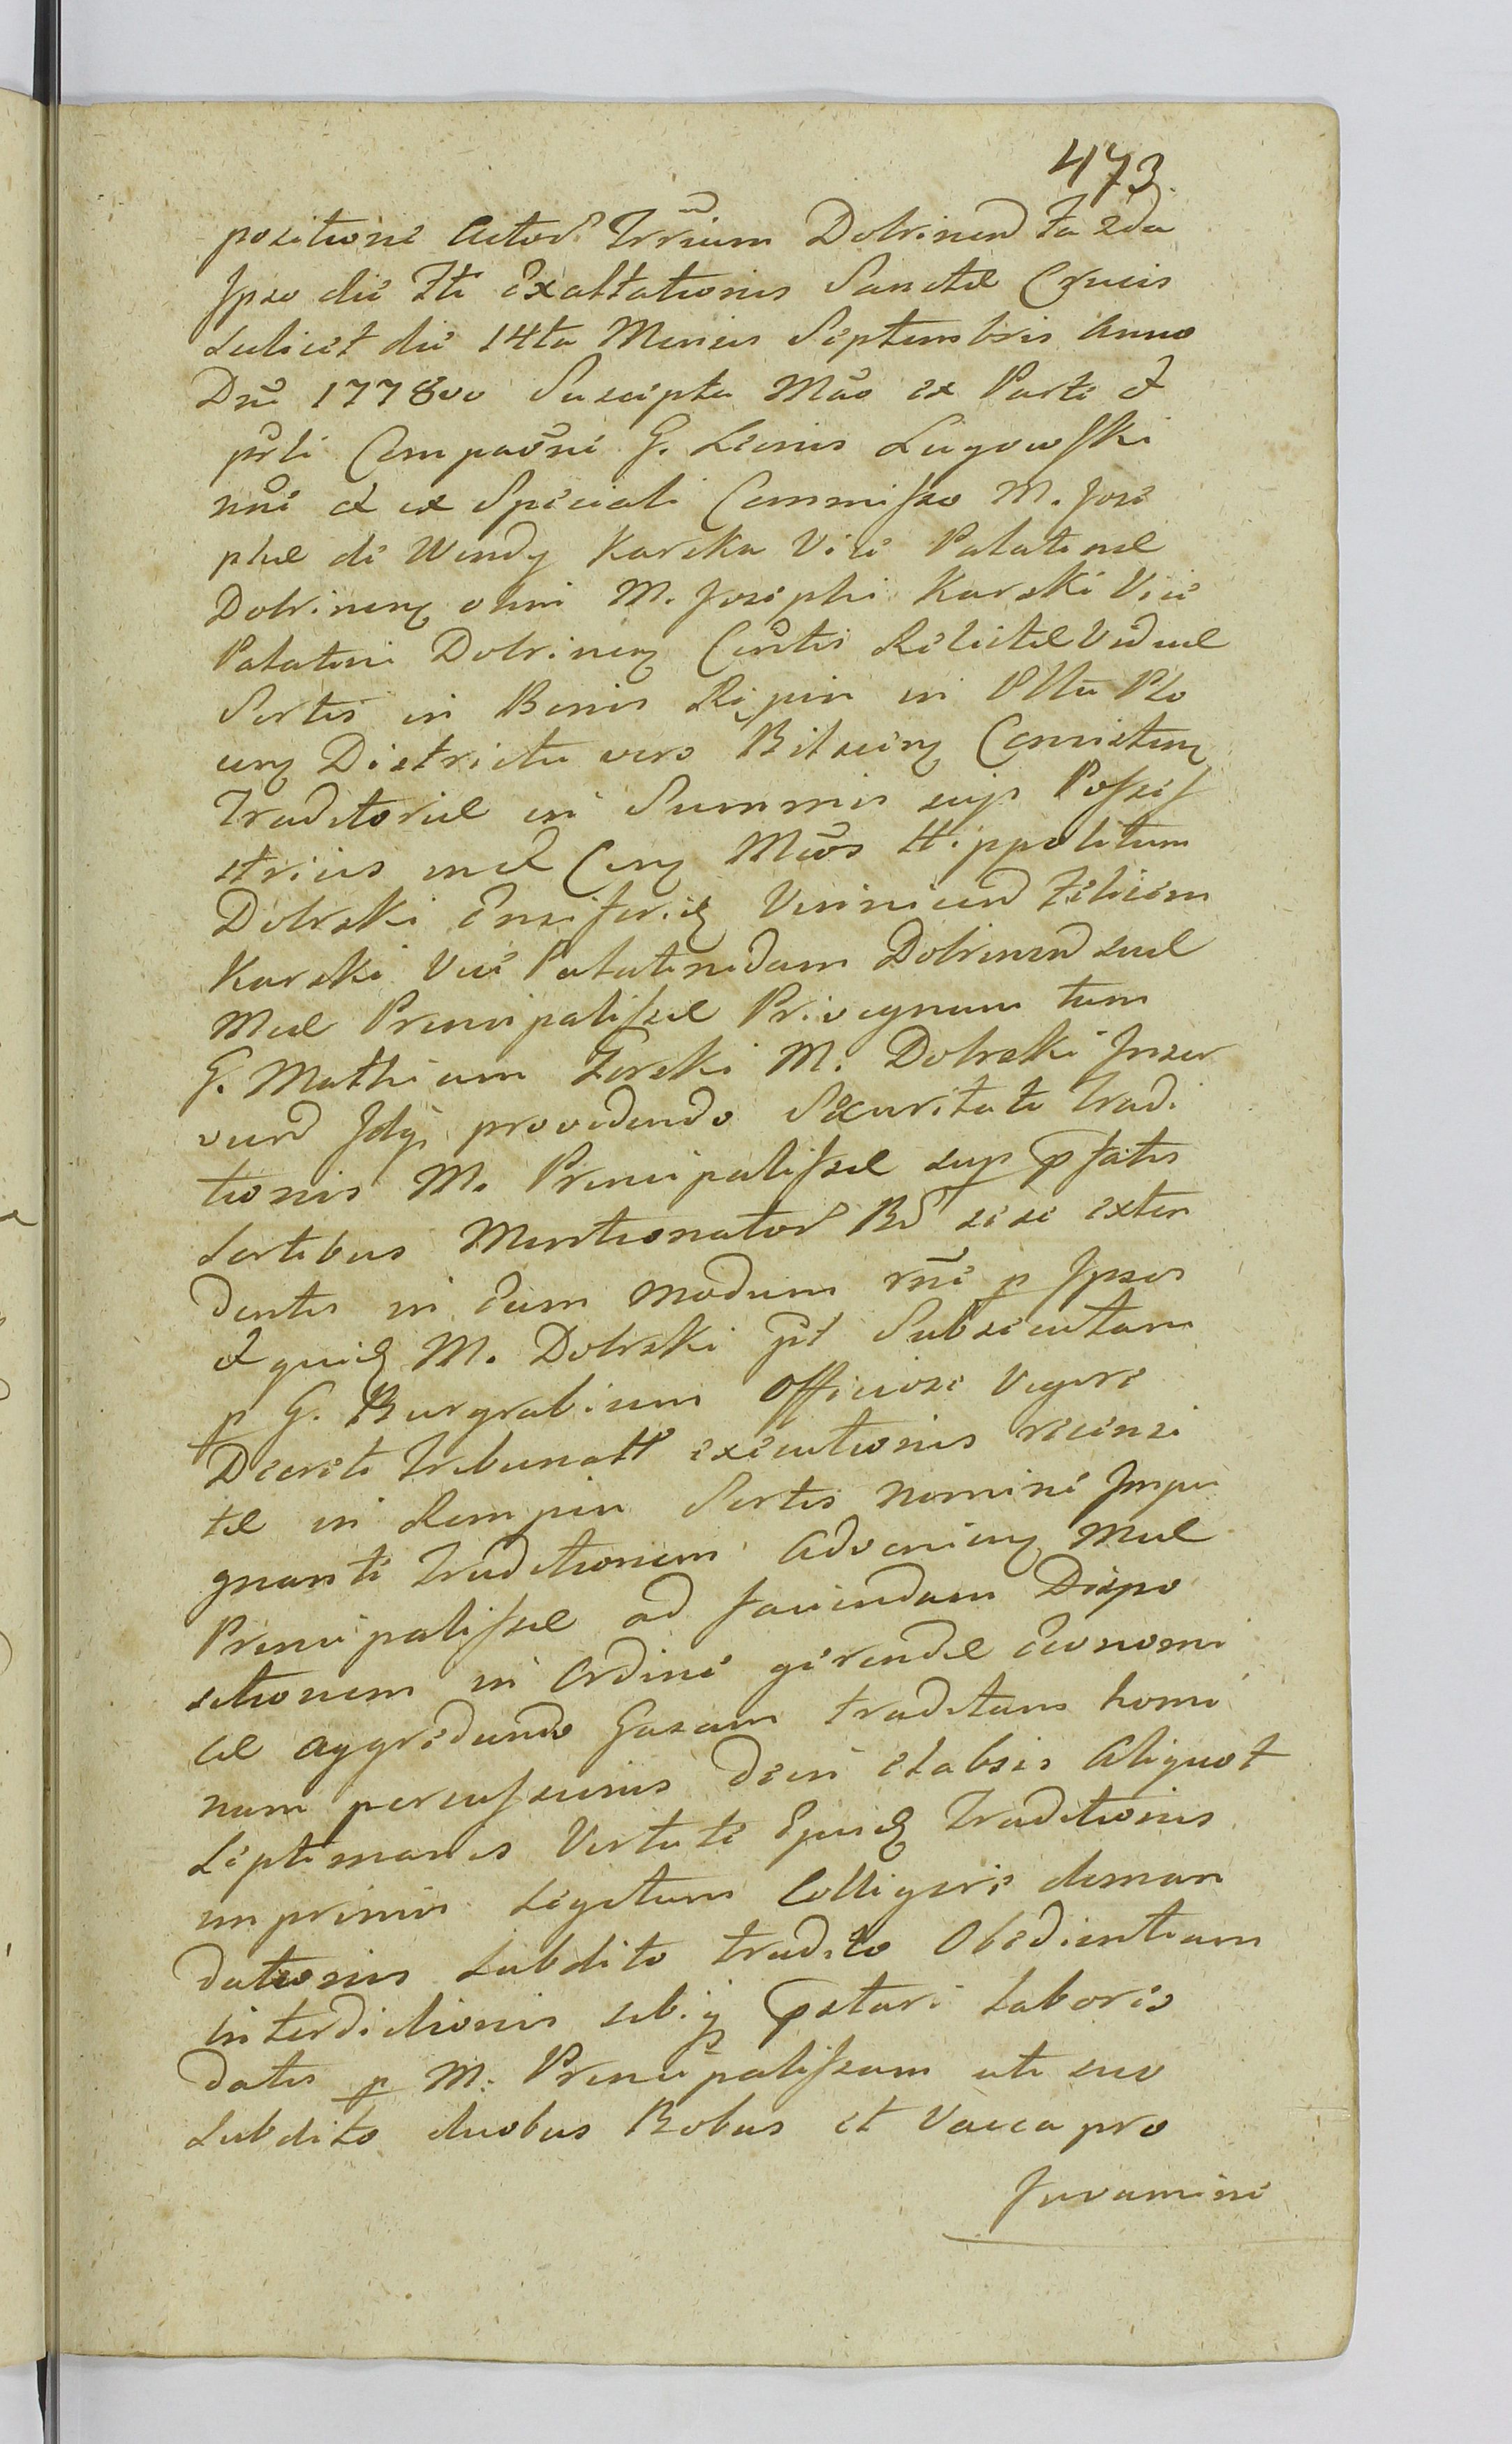 473.
positione Actor Trrium Dobrinen Fa 2da
Ipso die Fti Exaltationis Sanctæ Crucis
scilicet die 14ta Mensis Septembris Anno
Dni 1778vo Suscepta Mao ex Parte et
prli Comparne G. Leonis Lugowski
nne et ex Speciali Commisso M. Jose
phæ de Wendy Karska Vice Palatinæ
Dobrinens olim M. Josephi Karski Vice
Palatini Dobrinens Contis Relictæ Viduæ
Sortis in Bonis Rępin in Pltu Plo
cens Districtu vero Bilscens Consistens
Traditoriæ in Summis sup Possess
etricis med Cons Mcos Hippolitum
Dobrski Ensiferid Vinnicen Felicem
Karski Vice Palatinidam Dobrinen suæ
Mcæ Principalissæ Privegnum tum
G. Mathiam Zorski M. Dobrski Inser
vien Idq providendo Securitate Tradi
tionis M. Principalissæ sup pfatis
Sortibus Mentionator B sese exten
dentis in Eum modum rne p Ipsos
et quid M. Dobrski pt Subsecutam
p G. Burgrabium Officiose Vigore
Decreti Tribunatt executionis recensi
tæ in Rempin Sortis nomine Impu
gnante Traditionem Advenieng Mcæ
Principalissæ ad faciendam Dispo
sitionem in Ordine gerendæ Economi
cæ aggrediundo Gazam traditam homi
num percussionis dein elabsis Aliquot
Septimanis Virtute Ejusd Traditionis
imprimis Segetum Colligere deman
dationis Subdito tradito Obedientiam
interdictionis sibiq pstari Laboris
datis p M. Principalissam uti suo
Subdito duobus Bobus et Vacca pro
Juvamine